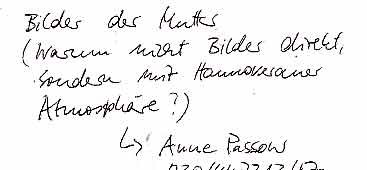 Bilder der Mutter
(Warum nicht Bilder direkt,
sondern mit Hannoveraner
Atmosphäre?)
↳ Anne Passow